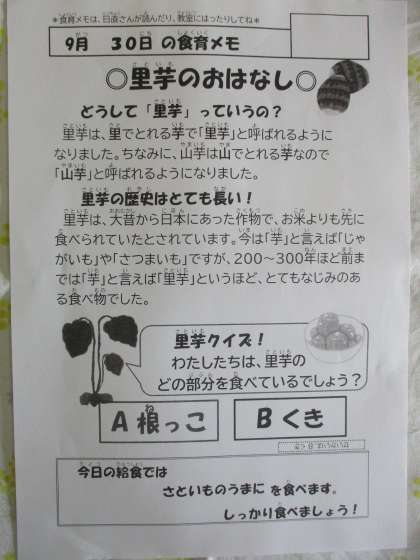 ＊食育メモは、日直さんが読んだり、教室にはったりしてね＊
9月　30日 の食育メモ
◎里芋のおはなし◎
どうして「里芋」っていうの？
里芋は、里でとれる芋で「里芋」と呼ばれるように
なりました。ちなみに、山芋は山でとれる芋なので
「山芋」と呼ばれるようになりました。
里芋の歴史はとても長い！
里芋は、大昔から日本にあった作物で、お米よりも先に
食べられていたとされています。今は「芋」と言えば「じゃ
がいも」や「さつまいも」ですが、200～300年ほど前ま
では「芋」と言えば「里芋」というほど、とてもなじみのあ
る食べ物でした。
里芋クイズ！
わたしたちは、里芋の
どの部分を食べているでしょう？
A 根っこ
B くき
せいかいは、B くき
今日の給食では
さといものうまに を食べます。
しっかり食べましょう！